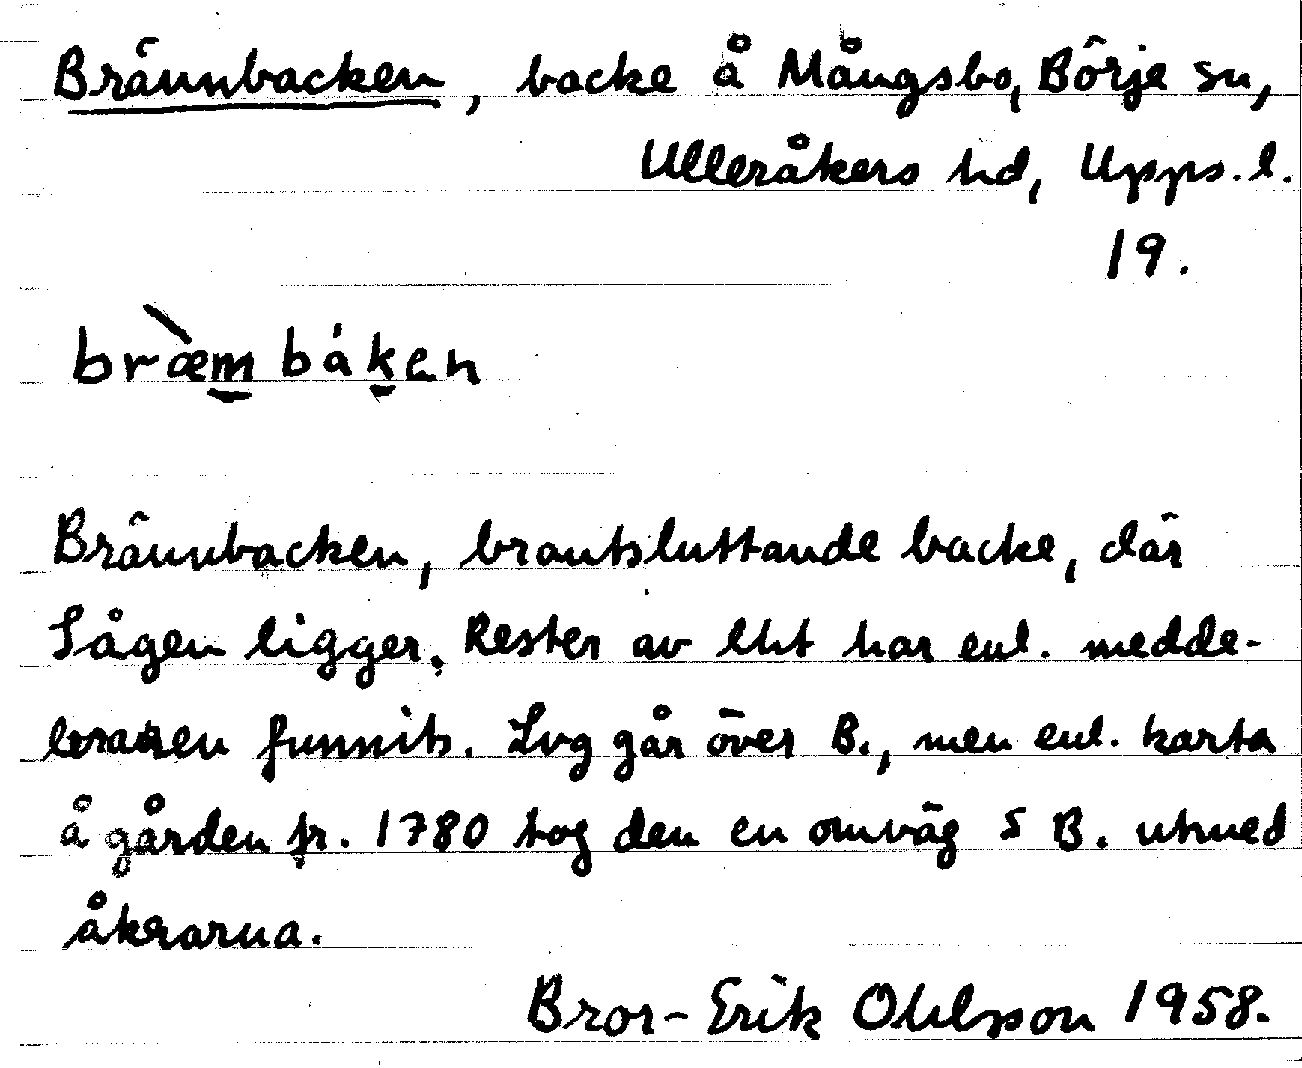 Brännbacken, backe å Mångsbo, Börje sn,
Ulleråkers hd, Upps. l.
19.
bræ̀m båken
Brännbacken, brantsluttande backe, där
Sågen ligger. Rester av lht har enl. medde-
leraren funnits. Lvg går över B., men enl. karta
å gården fr. 1780 tog den en omväg S B. utmed
åkrarna.
Bror-Erik Ohlson 1958.